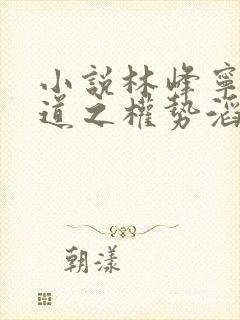 小說林峰寧
道之權勢滔
朝漾